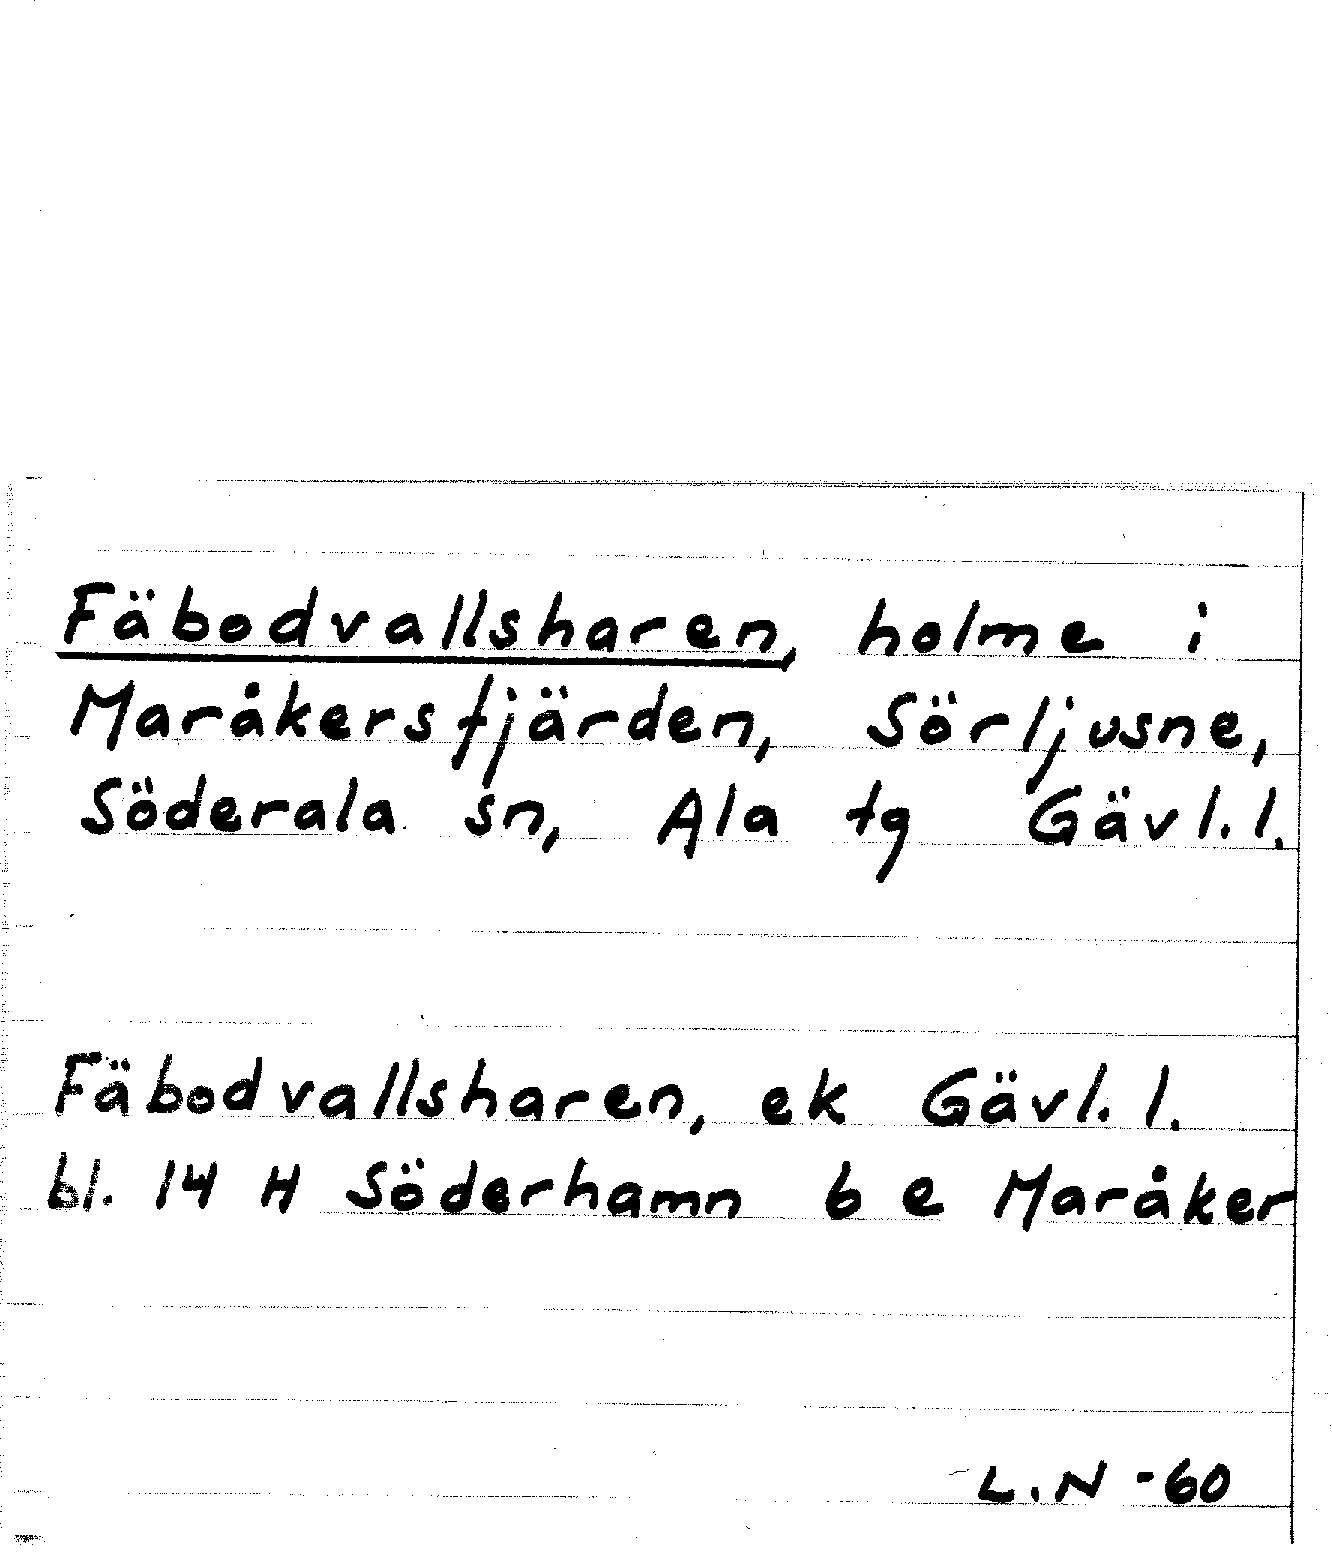 Fäbodvallsharen, holme i
Maråkersfjärden, Sörljusne,
Söderala sn, Ala tg Gävl. l.
Fäbodvallsharen, ek Gävl. l.
bl. 14 H Söderhamn 6 e Maråker
L. N -60